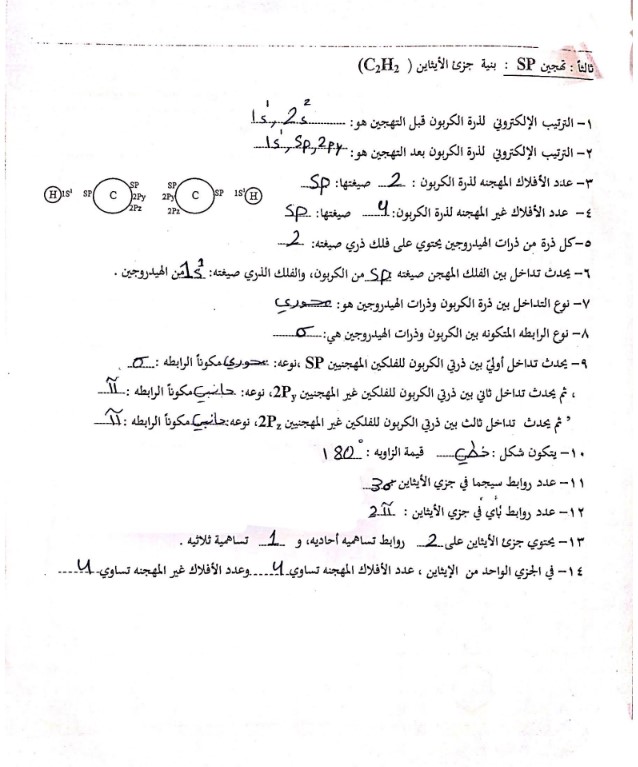 ثالثاً : تهجين SP : بنية جزئ الأيثاين ( C2H2)
١- الترتيب الإلكتروني لذرة الكربون قبل التهجين هو: 1s¹, 2s²
٢- الترتيب الإلكتروني لذرة الكربون بعد التهجين هو: 1s¹, sp, 2py
٣- عدد الأفلاك المهجنه لذرة الكربون : 2 صيغتها: sp
٤- عدد الأفلاك غير المهجنه لذرة الكربون: 4 صيغتها: sp
H 1S¹ SP C SP 2Py 2Pz SP 2Py 2Pz C SP 1S¹ H
٥-كل ذرة من ذرات الهيدروجين يحتوي على فلك ذري صيغته: 2
٦- يحدث تداخل بين الفلك المهجن صيغته sp من الكربون، والفلك الذري صيغته: 1s¹ من الهيدروجين .
٧- نوع التداخل بين ذرة الكربون وذرات الهيدروجين هو: محوري
٨- نوع الرابطه المتكونه بين الكربون وذرات الهيدروجين هي: σ
٩- يحدث تداخل أوليّ بين ذرتي الكربون للفلكين المهجنيين SP ،نوعه: محوري مكوناً الرابطه : σ
، ثم يحدث تداخل ثاني بين ذرتي الكربون للفلكين غير المهجنيين 2Py، نوعه: جانبي مكوناً الرابطه : π
، ثم يحدث تداخل ثالث بين ذرتي الكربون للفلكين غير المهجنيين 2Pz، نوعه: جانبي مكوناً الرابطه : π
١٠- يتكون شكل : خطي قيمة الزاويه : 180°
١١- عدد روابط سيجما في جزي الأيثاين 3σ
١٢- عدد روابط بأي في جزي الأيثاين : 2π
١٣- يحتوي جزئ الأيثاين على 2 روابط تساهميه أحاديه، و 1 تساهمية ثلاثيه .
١٤- في الجزي الواحد من الإيثاين ، عدد الأفلاك المهجنه تساوي 4 وعدد الأفلاك غير المهجنه تساوي 4